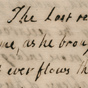 The Last
, as he brou
ever flows th